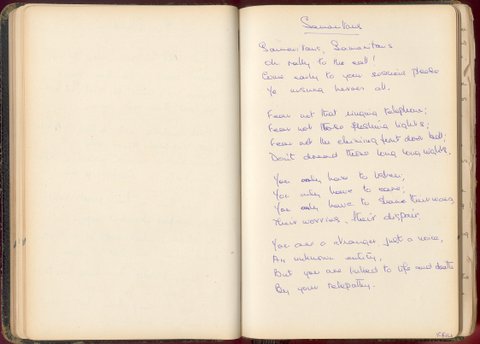 Samaritans
Samaritans, Samaritans
Oh rally to the call!
Come early to your sessions please
Ye unsung heroes all.
Fear not that ringing telephone;
Fear not those flashing lights;
Fear not the chiming front door bell;
Don't dread these long long nights.
You only have to listen;
You only have to care;
You only have to share their woes,
Their worries, their despair.
You are a stranger, just a voice,
An unknown entity,
But you are linked to life and death
By your telepathy.